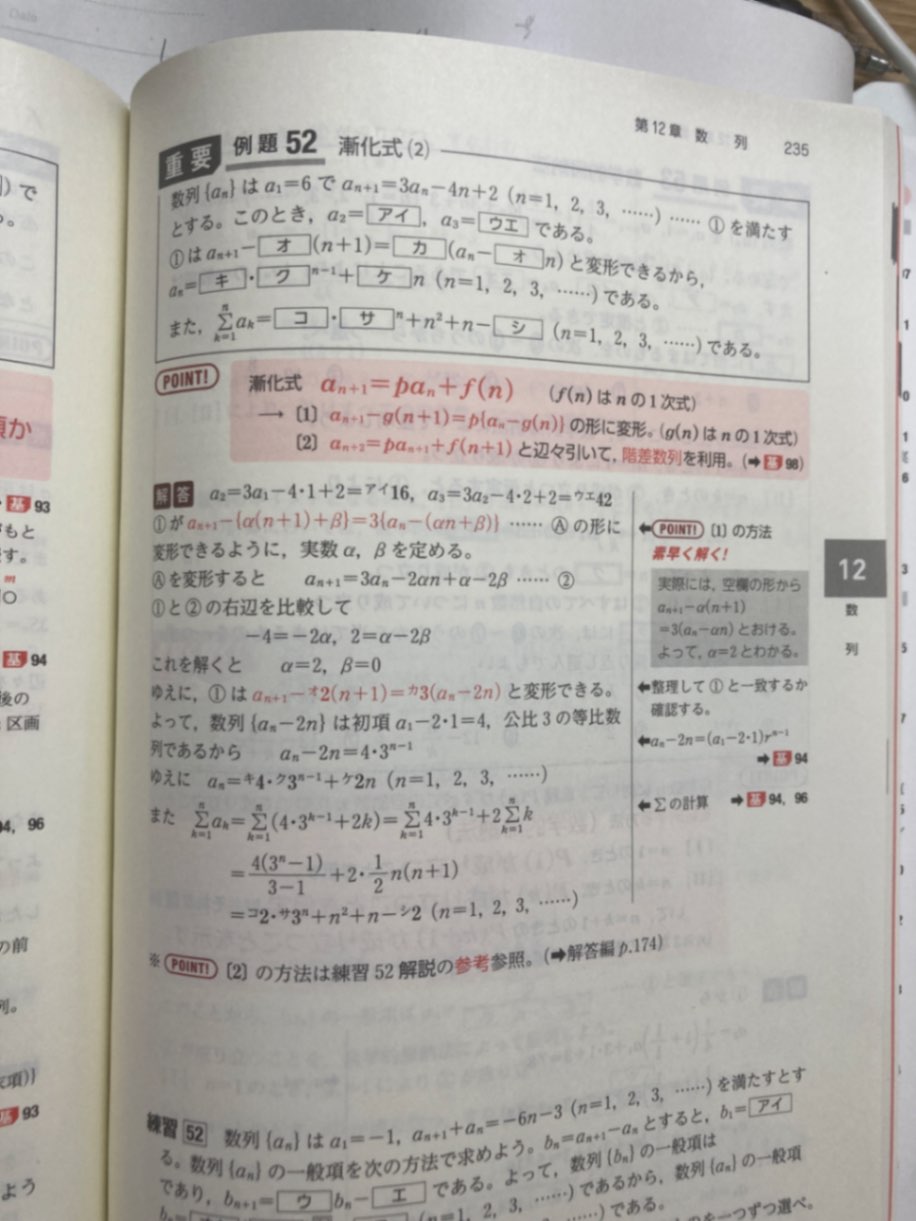 Date
第12章 数 列 235
重要 例題 52 漸化式(2)
数列 {aₙ} は a₁=6 で aₙ₊₁=3aₙ−4n+2 (n=1, 2, 3, ……) …… ① を満たす
とする。このとき, a₂=アイ, a₃=ウエ である。
①は aₙ₊₁−オ(n+1)=カ(aₙ−オn) と変形できるから,
aₙ=キ・クⁿ⁻¹+ケn (n=1, 2, 3, ……) である。
また, Σ[k=1→n] aₖ=コ・サⁿ+n²+n−シ (n=1, 2, 3, ……) である。
POINT! 漸化式 aₙ₊₁=paₙ+f(n) (f(n) は n の1次式)
→ 〔1〕 aₙ₊₁−g(n+1)=p{aₙ−g(n)} の形に変形。(g(n) は n の1次式)
〔2〕 aₙ₊₂=paₙ₊₁+f(n+1) と辺々引いて, 階差数列を利用。(➡基98)
解答 a₂=3a₁−4・1+2=アイ16, a₃=3a₂−4・2+2=ウエ42
①が aₙ₊₁−{α(n+1)+β}=3{aₙ−(αn+β)} …… Ⓐ の形に
変形できるように, 実数 α, β を定める。
Ⓐを変形すると aₙ₊₁=3aₙ−2αn+α−2β …… ②
①と②の右辺を比較して
−4=−2α, 2=α−2β
これを解くと α=2, β=0
ゆえに, ①は aₙ₊₁−オ2(n+1)=カ3(aₙ−2n) と変形できる。
よって, 数列 {aₙ−2n} は初項 a₁−2・1=4, 公比3の等比数
列であるから aₙ−2n=4・3ⁿ⁻¹
ゆえに aₙ=キ4・ク3ⁿ⁻¹+ケ2n (n=1, 2, 3, ……)
また Σ[k=1→n] aₖ=Σ[k=1→n](4・3ᵏ⁻¹+2k)=Σ[k=1→n]4・3ᵏ⁻¹+2Σ[k=1→n]k
=4(3ⁿ−1)/(3−1)+2・1/2 n(n+1)
=コ2・サ3ⁿ+n²+n−シ2 (n=1, 2, 3, ……)
←POINT! 〔1〕の方法
素早く解く!
実際には, 空欄の形から
aₙ₊₁−α(n+1)
=3(aₙ−αn) とおける。
よって, α=2 とわかる。
←整理して①と一致するか
確認する。
←aₙ−2n=(a₁−2・1)rⁿ⁻¹
➡基94
←Σの計算 ➡基94, 96
※POINT! 〔2〕の方法は練習52解説の参考参照。(➡解答編 p.174)
練習 52 数列 {aₙ} は a₁=−1, aₙ₊₁+aₙ=−6n−3 (n=1, 2, 3, ……) を満たすとす
る。数列 {aₙ} の一般項を次の方法で求めよう。bₙ=aₙ₊₁−aₙ とすると, b₁=アイ
であり, bₙ₊₁=ウbₙ−エ である。よって, 数列 {bₙ} の一般項は
(n=1, 2, 3, ……) であるから, 数列 {aₙ} の一般項
(n=1, 2, 3, ……) である。
一つずつ選べ。
12
数
列
で
基93
基94
区画
94, 96
の前
列。
基93
よう